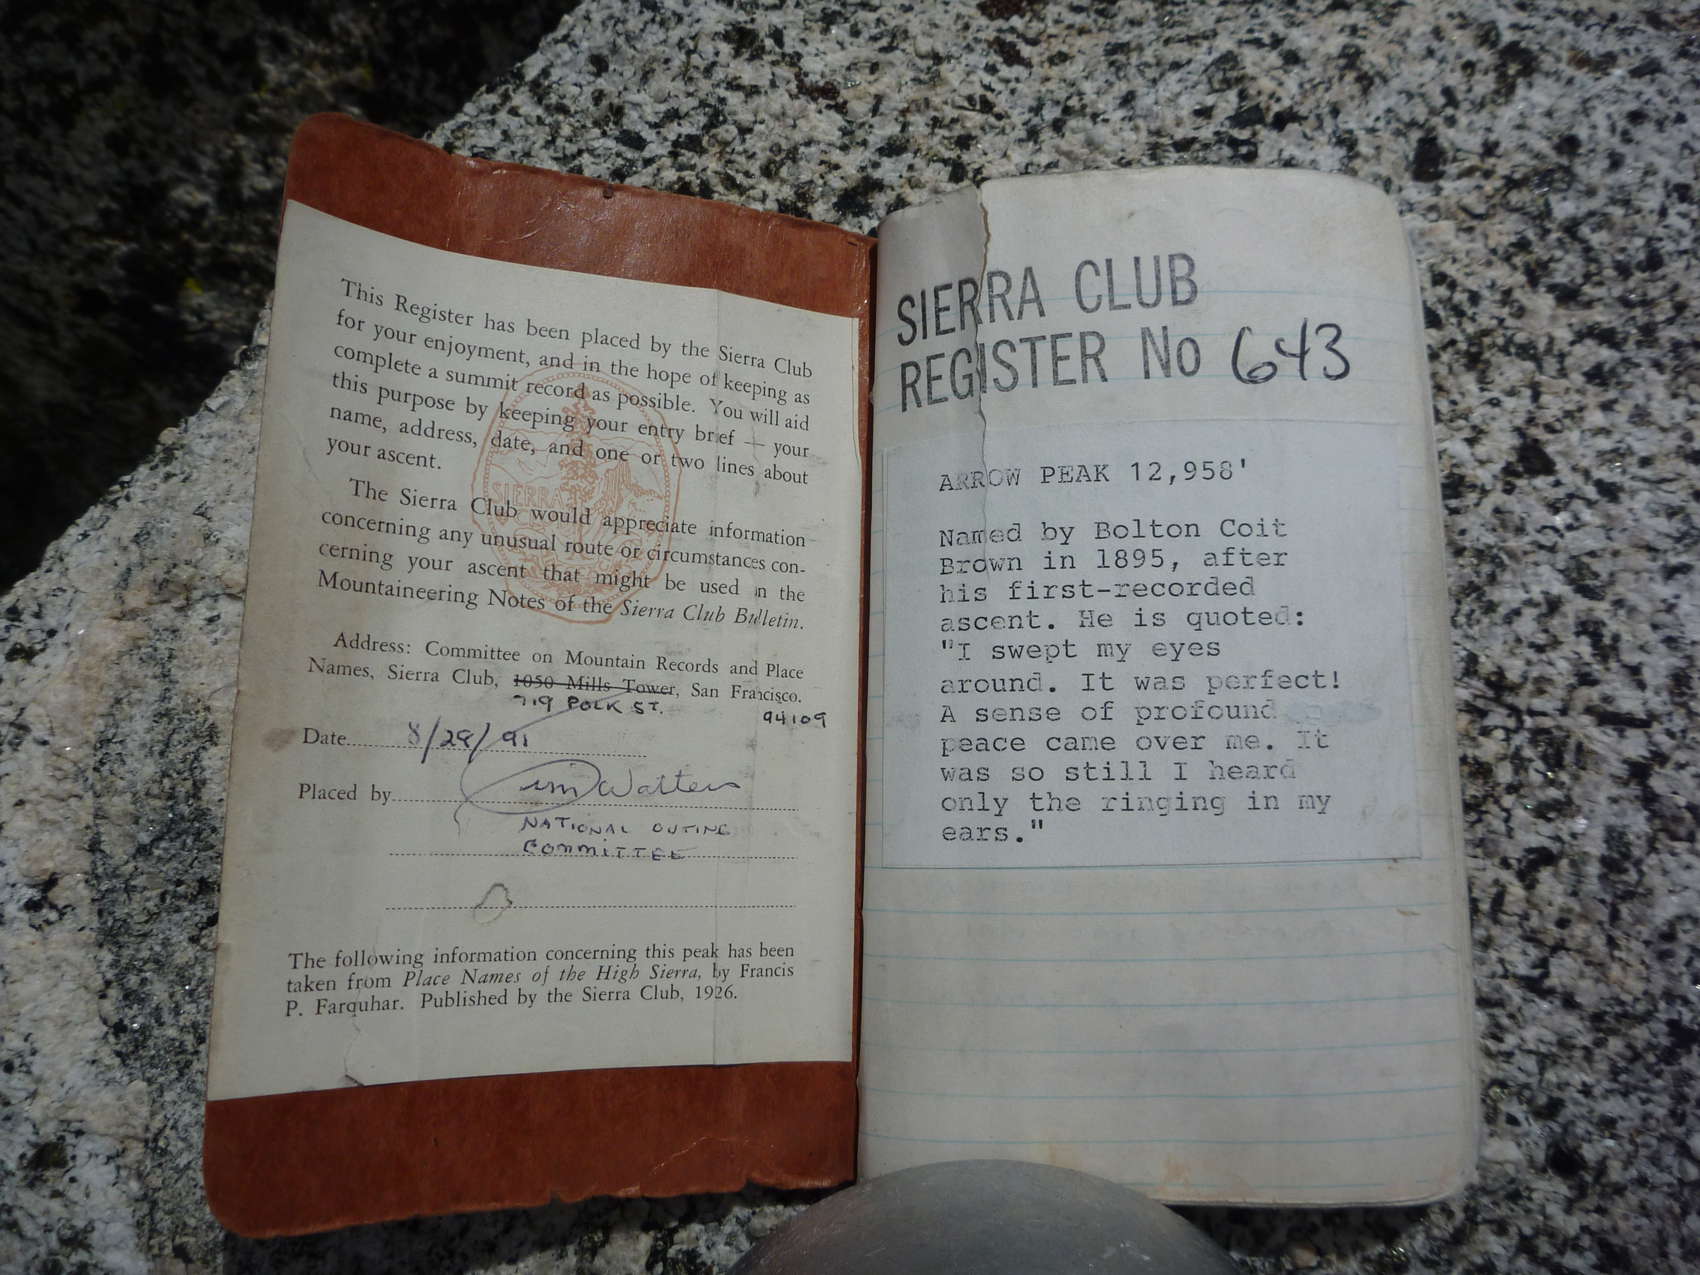 This Register has been placed by the Sierra Club
for your enjoyment, and in the hope of keeping as
complete a summit record as possible. You will aid
this purpose by keeping your entry brief — your
name, address, date, and one or two lines about
your ascent.
The Sierra Club would appreciate information
concerning any unusual route or circumstances con-
cerning your ascent that might be used in the
Mountaineering Notes of the Sierra Club Bulletin.
Address: Committee on Mountain Records and Place
Names, Sierra Club, 1050 Mills Tower, San Francisco.
719 POLK ST. 94109
Date 8/29/91
Placed by Jim Watters
NATIONAL OUTING
COMMITTEE
The following information concerning this peak has been
taken from Place Names of the High Sierra, by Francis
P. Farquhar. Published by the Sierra Club, 1926.
SIERRA CLUB
REGISTER No 643
ARROW PEAK 12,958'
Named by Bolton Coit
Brown in 1895, after
his first-recorded
ascent. He is quoted:
"I swept my eyes
around. It was perfect!
A sense of profound
peace came over me. It
was so still I heard
only the ringing in my
ears."